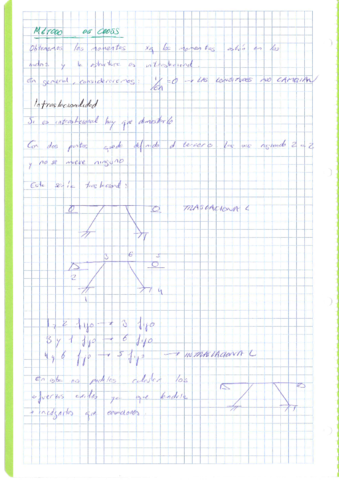 Método de CROSS
Obtenemos los momentos en los
nudos y la estructura es intraslacional
En general, consideraremos = 0 → LAS LONGITUDES NO CAMBIAN
Intraslacionalidad
Si es intraslacional hay que demostrarlo
Con dos puntos queda definido el tercero 2 a 2
y no se mueve ninguno
Esta sería traslacional:
TRASLACIONAL
3 6 5
2
1 4
1 y 2 fijo → 3 fijo
3 y 1 fijo → 6 fijo
4 y 6 fijo → 5 fijo → INTRASLACIONAL
En esta no podemos calcular los
esfuerzos axiles ya que tendría
+ incógnitas que ecuaciones